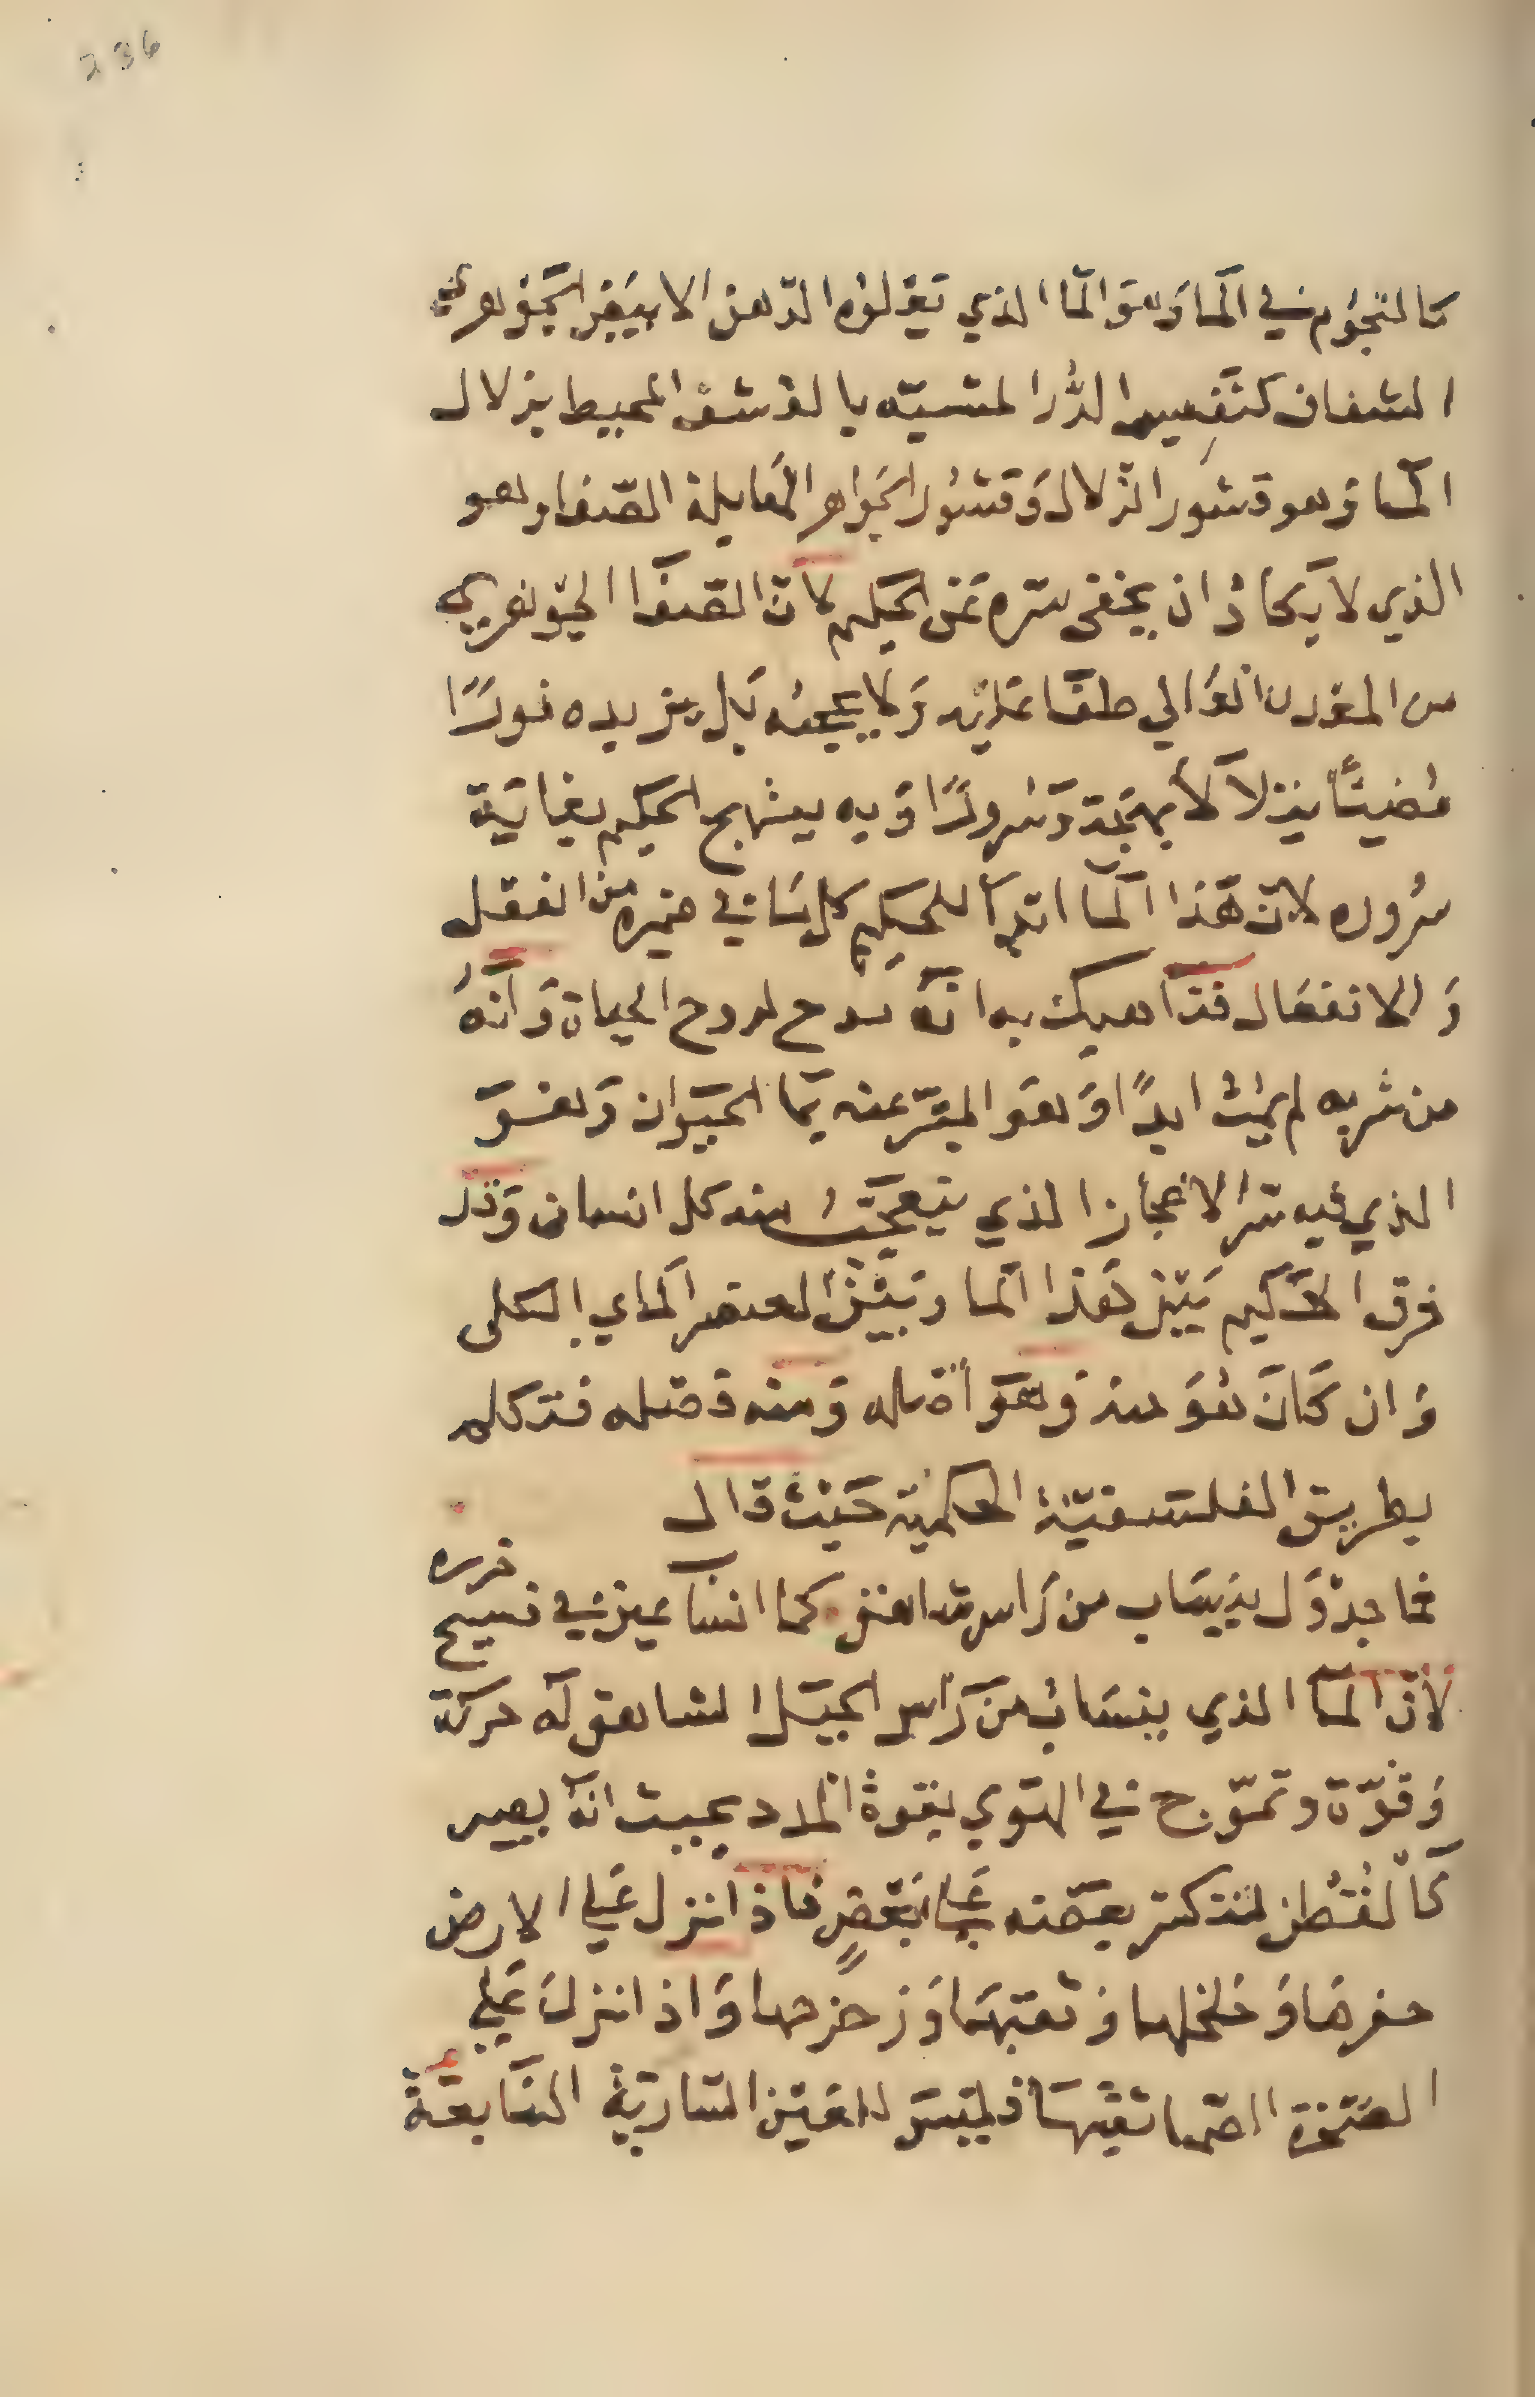 236
كالنجوم في الماء وهو الما الذي تعلوه الدهن الابيض الجوهري
الشفاف كنفيس الدر المشبه بالقشف المحيط بزلال
الما وهو قشور الزلال وقشور الجواهر القابلة الصفا وهو
الذي لا يكاد ان يخفى سره عن الحكيم لان الصفا الجوهري
من المعدن العالي طفا عليه ولا يحجبه بل يزيده نورًا
مضيئًا يتلالا بهجة وسرورًا وبه يبتهج الحكيم بغاية
سروره لان هذا الما اتم للحكيم كل ما في ضميره من الفعل
والانفعال فناهيك به انه روح لروح الحياة وانه
من شربه لم يمت ابدًا وهو المعبر عنه بما الحيوان وهو
الذي فيه سر الاعجاز الذي يتعجب منه كل انسان وقد
فرق الحكيم بين هذا الما وبين العنصر المائي الكلي
وان كان هو منه وهو أصله ومنه فصله فتكلم
بطريق الفلسفية الحكمية حيث قال
فما جدول ينساب من راس شاهق كما انساب عين في فسيح
لان الما الذي ينساب من راس الجبل الشاهق له حركة
وقوة وتموج في الهوي بقوة المدد بحيث انه يصير
كالقطن لتدكتر بعضه على بعض فاذا نزل علي الارض
حفرها وخلخلها وثقبها وزحزحها واذا نزل علي
الصخرة الصما ثقبها فليس للعين السارية النابعة